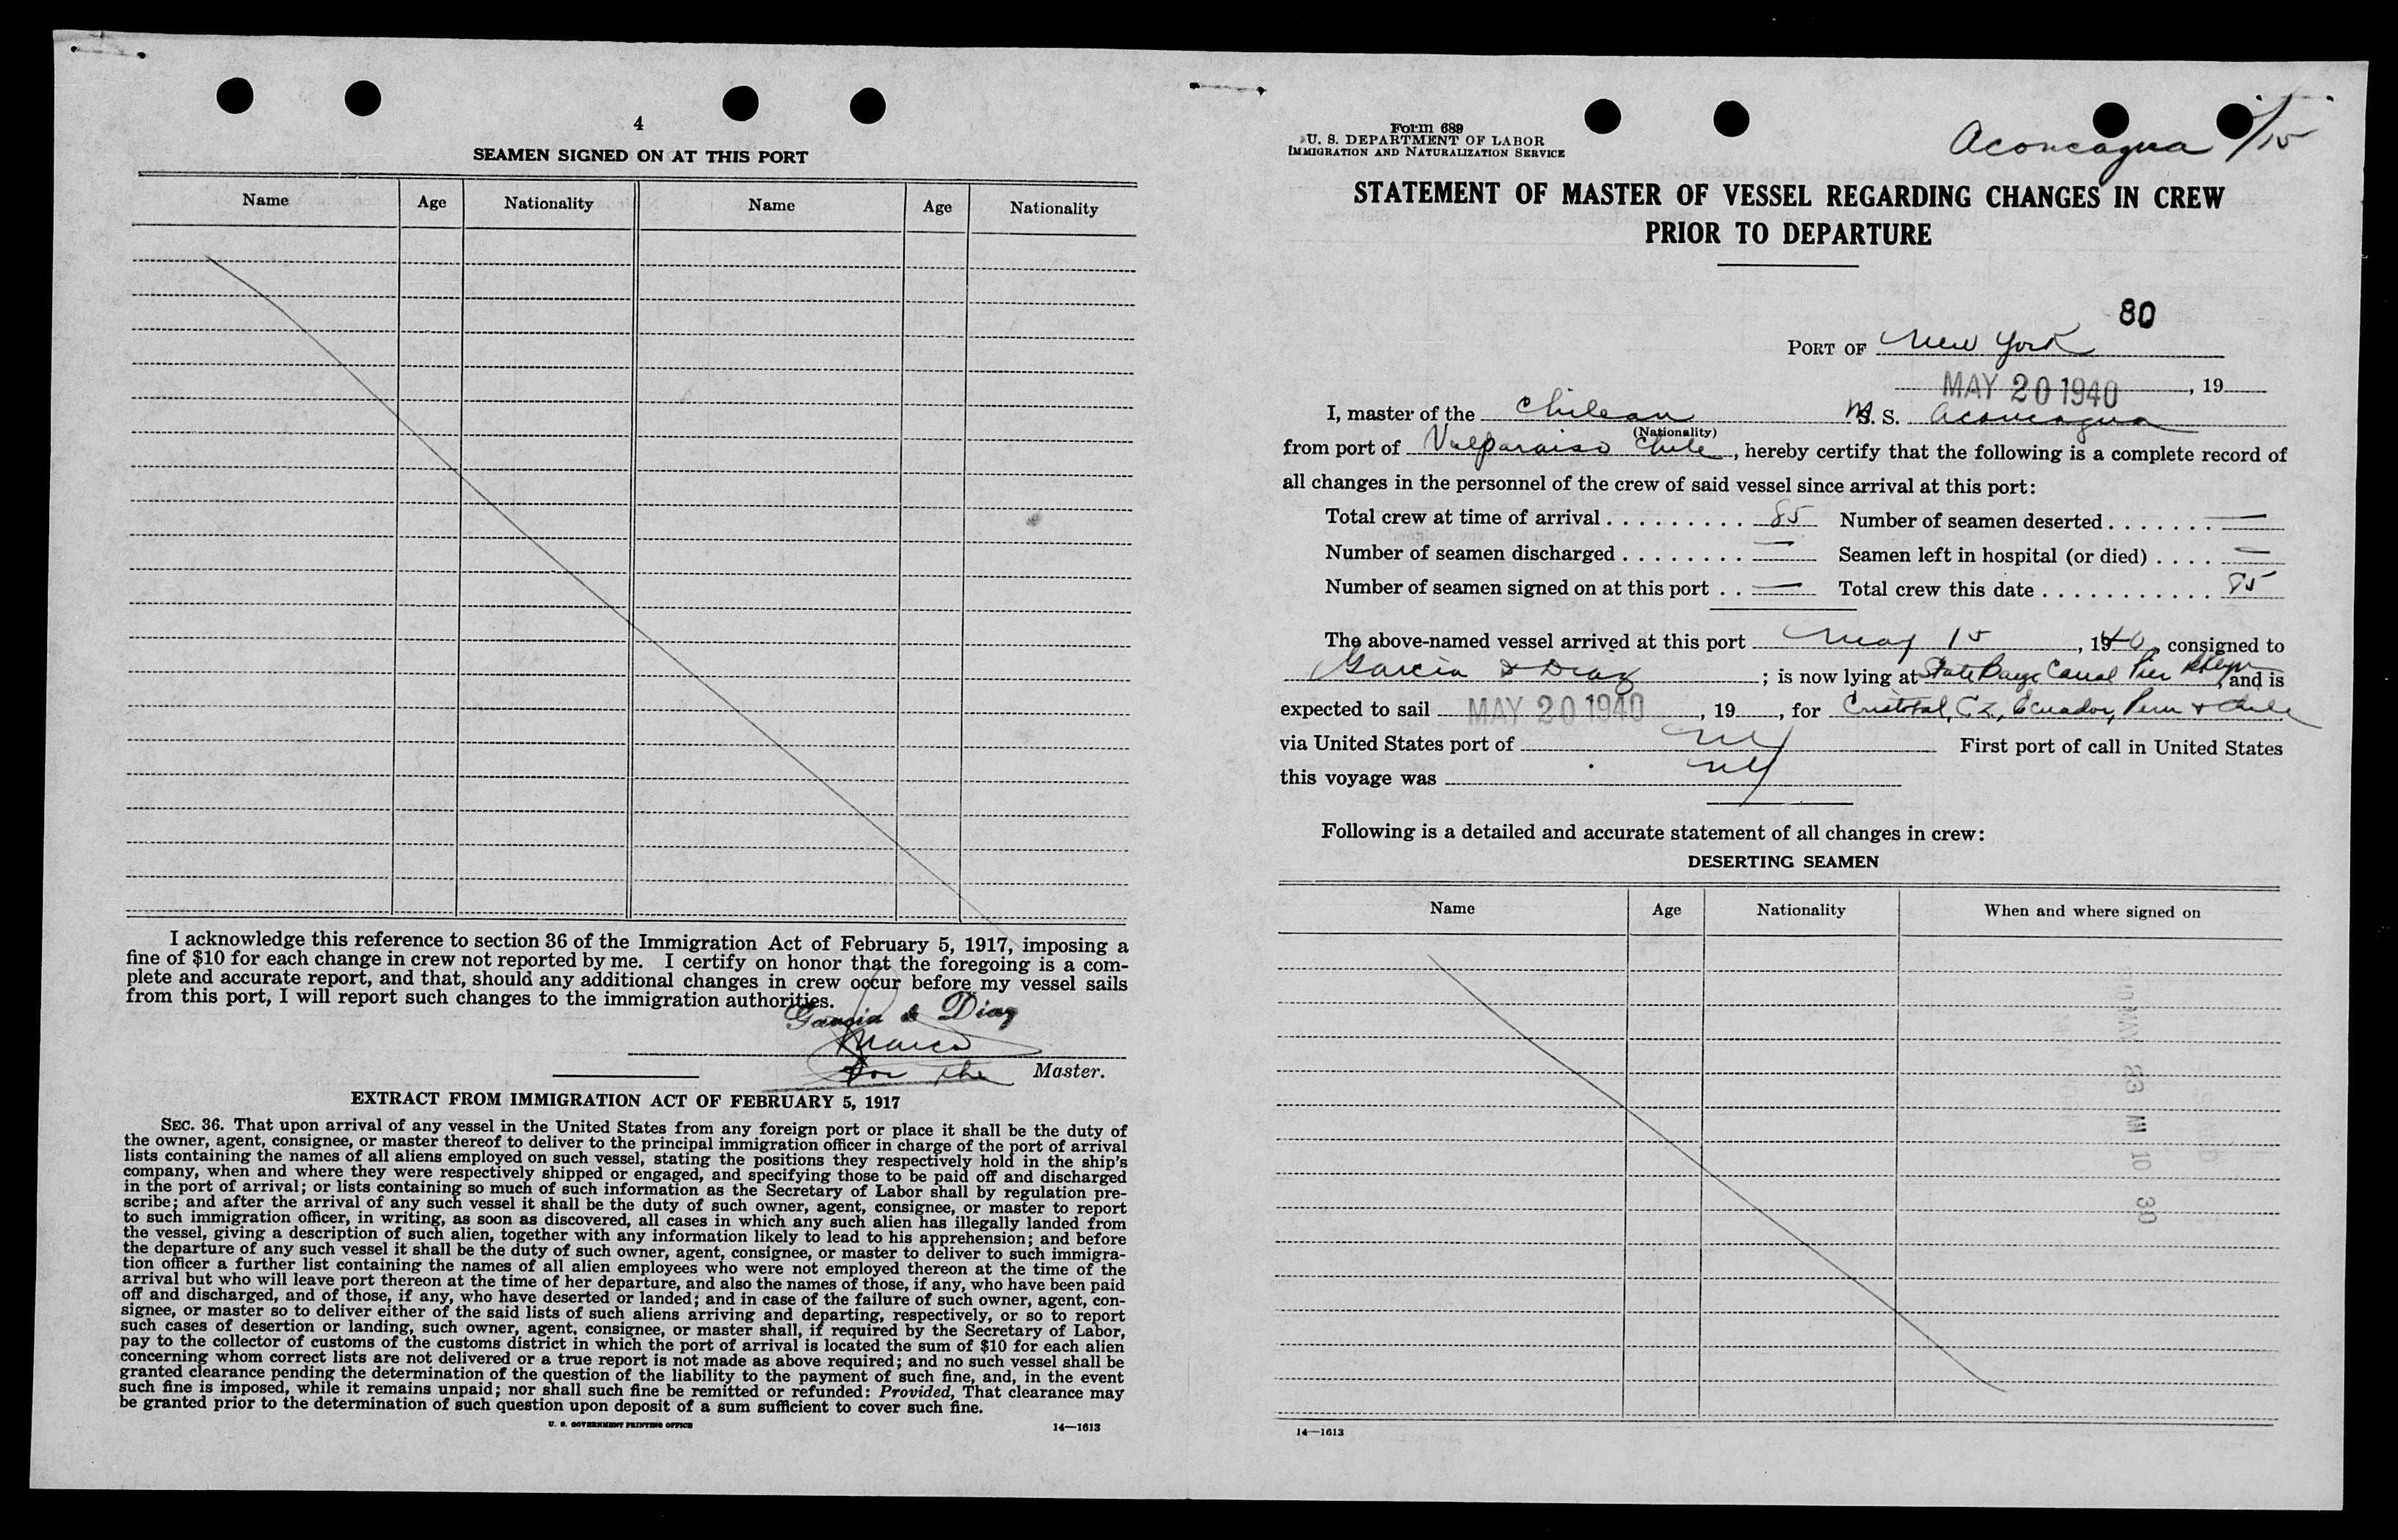 4
SEAMEN SIGNED ON AT THIS PORT
Name Age Nationality Name Age Nationality
I acknowledge this reference to section 36 of the Immigration Act of February 5, 1917, imposing a
fine of $10 for each change in crew not reported by me. I certify on honor that the foregoing is a com-
plete and accurate report, and that, should any additional changes in crew occur before my vessel sails
from this port, I will report such changes to the immigration authorities.
Garcia & Diaz
For the Master.
EXTRACT FROM IMMIGRATION ACT OF FEBRUARY 5, 1917
SEC. 36. That upon arrival of any vessel in the United States from any foreign port or place it shall be the duty of
the owner, agent, consignee, or master thereof to deliver to the principal immigration officer in charge of the port of arrival
lists containing the names of all aliens employed on such vessel, stating the positions they respectively hold in the ship's
company, when and where they were respectively shipped or engaged, and specifying those to be paid off and discharged
in the port of arrival; or lists containing so much of such information as the Secretary of Labor shall by regulation pre-
scribe; and after the arrival of any such vessel it shall be the duty of such owner, agent, consignee, or master to report
to such immigration officer, in writing, as soon as discovered, all cases in which any such alien has illegally landed from
the vessel, giving a description of such alien, together with any information likely to lead to his apprehension; and before
the departure of any such vessel it shall be the duty of such owner, agent, consignee, or master to deliver to such immigra-
tion officer a further list containing the names of all alien employees who were not employed thereon at the time of the
arrival but who will leave port thereon at the time of her departure, and also the names of those, if any, who have been paid
off and discharged, and of those, if any, who have deserted or landed; and in case of the failure of such owner, agent, con-
signee, or master so to deliver either of the said lists of such aliens arriving and departing, respectively, or so to report
such cases of desertion or landing, such owner, agent, consignee, or master shall, if required by the Secretary of Labor,
pay to the collector of customs of the customs district in which the port of arrival is located the sum of $10 for each alien
concerning whom correct lists are not delivered or a true report is not made as above required; and no such vessel shall be
granted clearance pending the determination of the question of the liability to the payment of such fine, and, in the event
such fine is imposed, while it remains unpaid; nor shall such fine be remitted or refunded: Provided, That clearance may
be granted prior to the determination of such question upon deposit of a sum sufficient to cover such fine.
U. S. GOVERNMENT PRINTING OFFICE 14—1613
Form 689
U. S. DEPARTMENT OF LABOR
IMMIGRATION AND NATURALIZATION SERVICE
Aconcagua 5/15
STATEMENT OF MASTER OF VESSEL REGARDING CHANGES IN CREW
PRIOR TO DEPARTURE
80
PORT OF New York
MAY 20 1940, 19
I, master of the Chilean M. S. Aconcagua
(Nationality)
from port of Valparaiso Chile, hereby certify that the following is a complete record of
all changes in the personnel of the crew of said vessel since arrival at this port:
Total crew at time of arrival . . . . . . . . . 85 Number of seamen deserted . . . . . . . —
Number of seamen discharged . . . . . . . . — Seamen left in hospital (or died) . . . . —
Number of seamen signed on at this port . . — Total crew this date . . . . . . . . . . . . 85
The above-named vessel arrived at this port May 15, 1940, consigned to
Garcia & Diaz; is now lying at State Barge Canal Pier Bklyn, and is
expected to sail MAY 20 1940, 19, for Cristobal, C.Z., Ecuador, Peru & Chile
via United States port of NY First port of call in United States
this voyage was NY
Following is a detailed and accurate statement of all changes in crew:
DESERTING SEAMEN
Name Age Nationality When and where signed on
14—1613